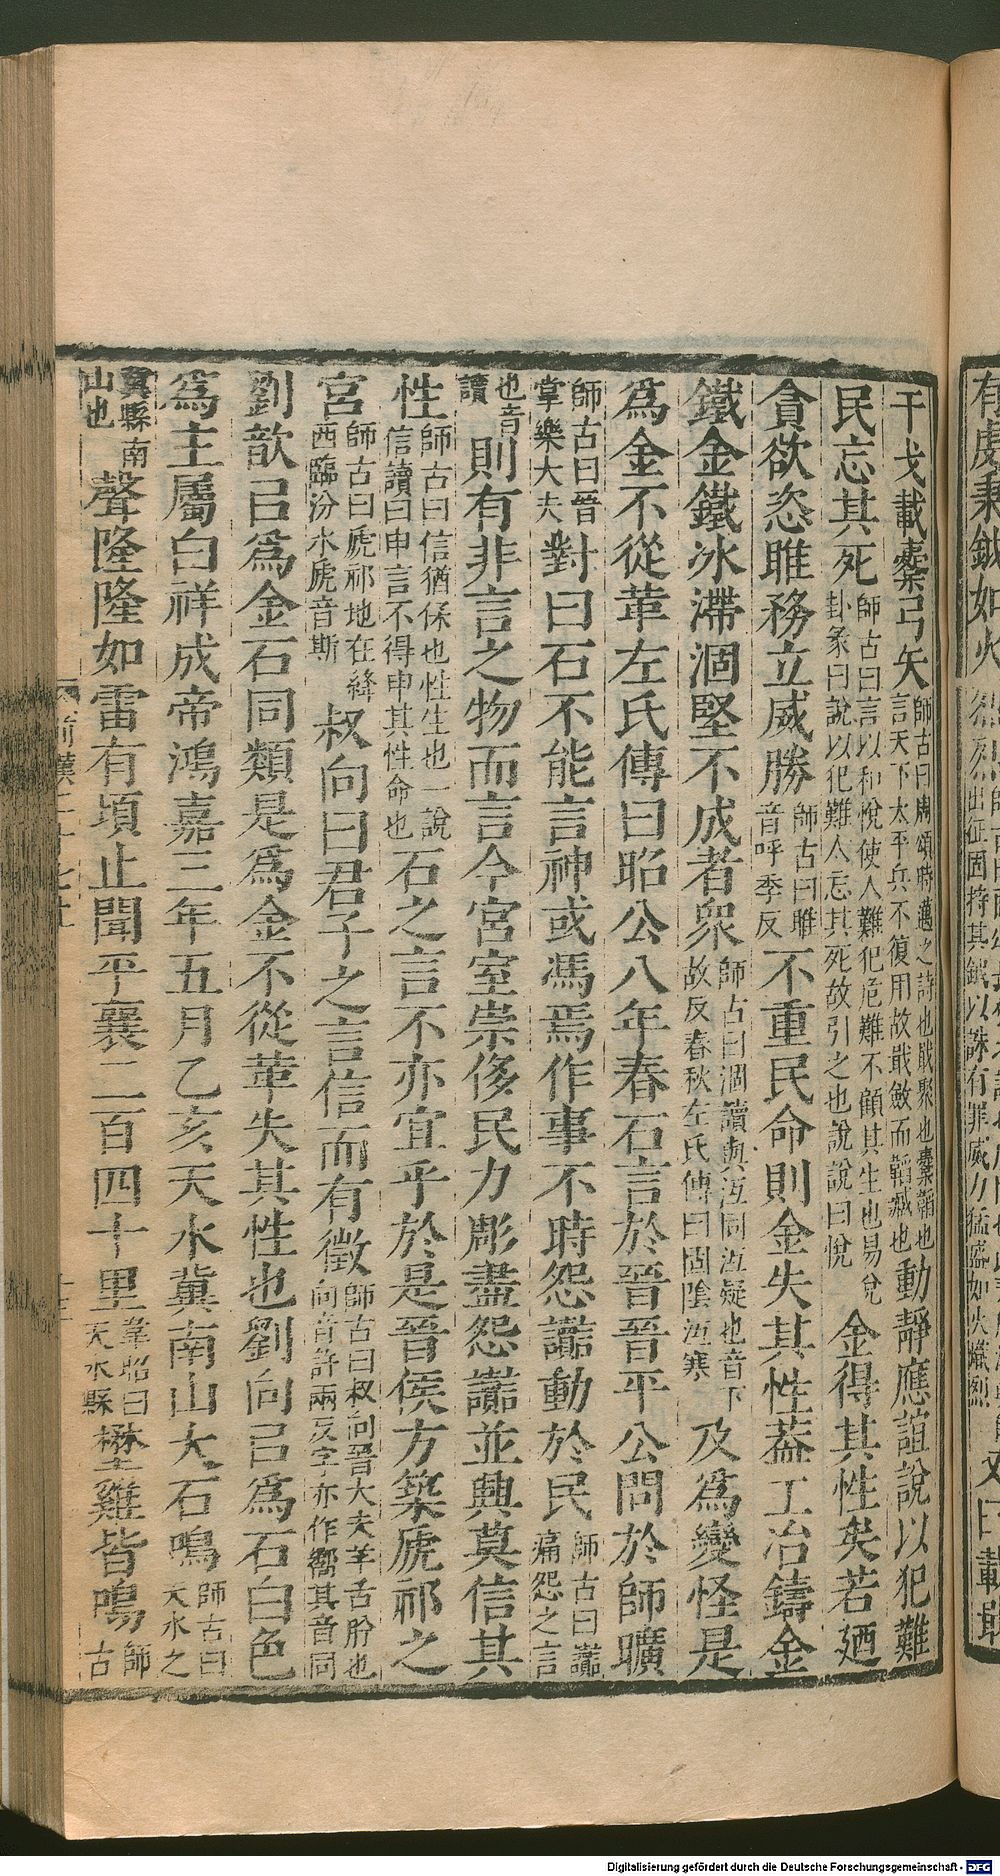 有虔秉鉞如火
干戈載櫜弓矢師古曰周頌時邁之詩也戢聚也櫜韜也言天下太平兵不復用故戢斂而韜臧也動靜應誼說以犯難
民忘其死師古曰言以和悅使人難犯危難不顧其生也易兌卦彖曰說以犯難人忘其死故引之也說說曰悅金得其性矣若廼
貪欲恣睢務立威勝師古曰睢音呼季反不重民命則金失其性葢工冶鑄金
鐵金鐵冰滯涸堅不成者衆師古曰涸讀與沍同沍凝也音下故反春秋左氏傳曰固陰沍寒及爲變怪是
爲金不從革左氏傳曰昭公八年春石言於晉晉平公問於師曠
師古曰晉掌樂大夫對曰石不能言神或馮焉作事不時怨讟動於民師古曰讟痛怨之言
也音讀則有非言之物而言今宮室崇侈民力彫盡怨讟並興莫信其
性師古曰信猶保也性生也一說信讀曰申言不得申其性命也石之言不亦宜乎於是晉侯方築虒祁之
宮師古曰虒祁地在絳西臨汾水虒音斯叔向曰君子之言信而有徵師古曰叔向晉大夫羊舌肸也向音許兩反字亦作嚮其音同
劉歆㠯爲金石同類是爲金不從革失其性也劉向㠯爲石白色
爲主屬白祥成帝鴻嘉三年五月乙亥天水冀南山大石鳴師古曰天水之
冀縣南山也聲隆隆如雷有頃止聞平襄二百四十里韋昭曰天水縣壄雞皆鳴師古
Digitalisierung gefördert durch die Deutsche Forschungsgemeinschaft - DFG